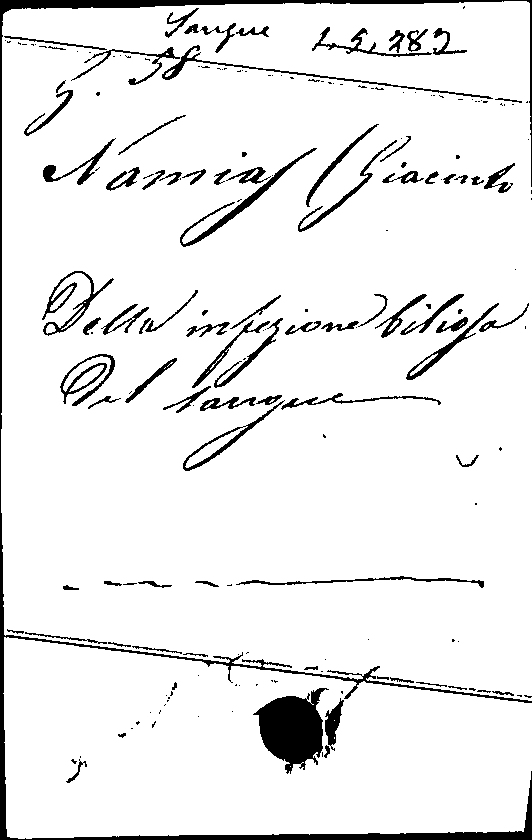 Sangue 1. 5. 282
G. 58
Namias (Giacinto
Della infezione biliosa
Del sangue